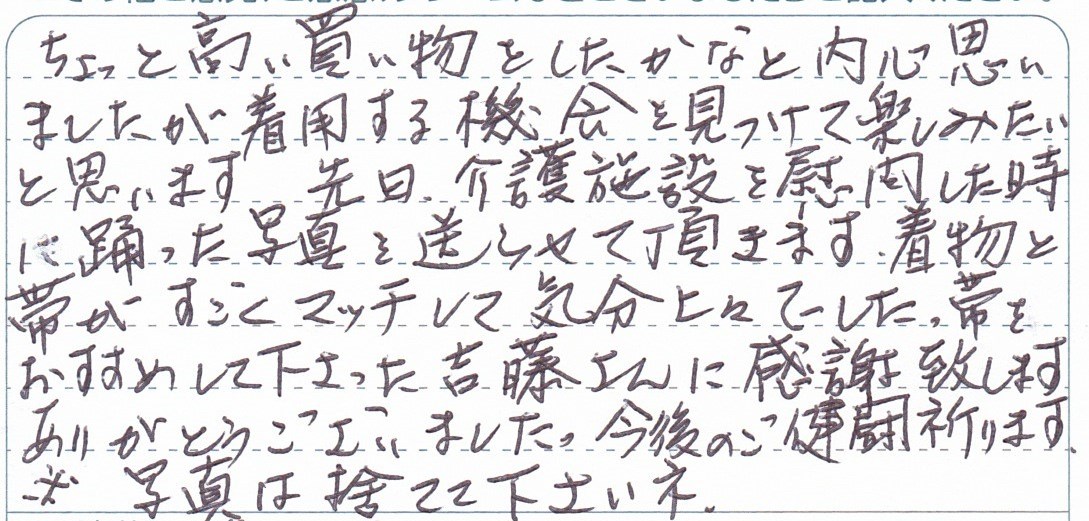 ちょっと高い買い物をしたかなと内心思い
ましたが着用する機会を見つけて楽しみたい
と思います 先日、介護施設を慰問した時
に踊った写真を送らせて頂きます、着物と
帯がすごくマッチして気分上々でした。帯を
おすすめして下さった吉藤さんに感謝致します
ありがとうございました。今後のご健闘祈ります。
※ 写真は捨てて下さいネ。